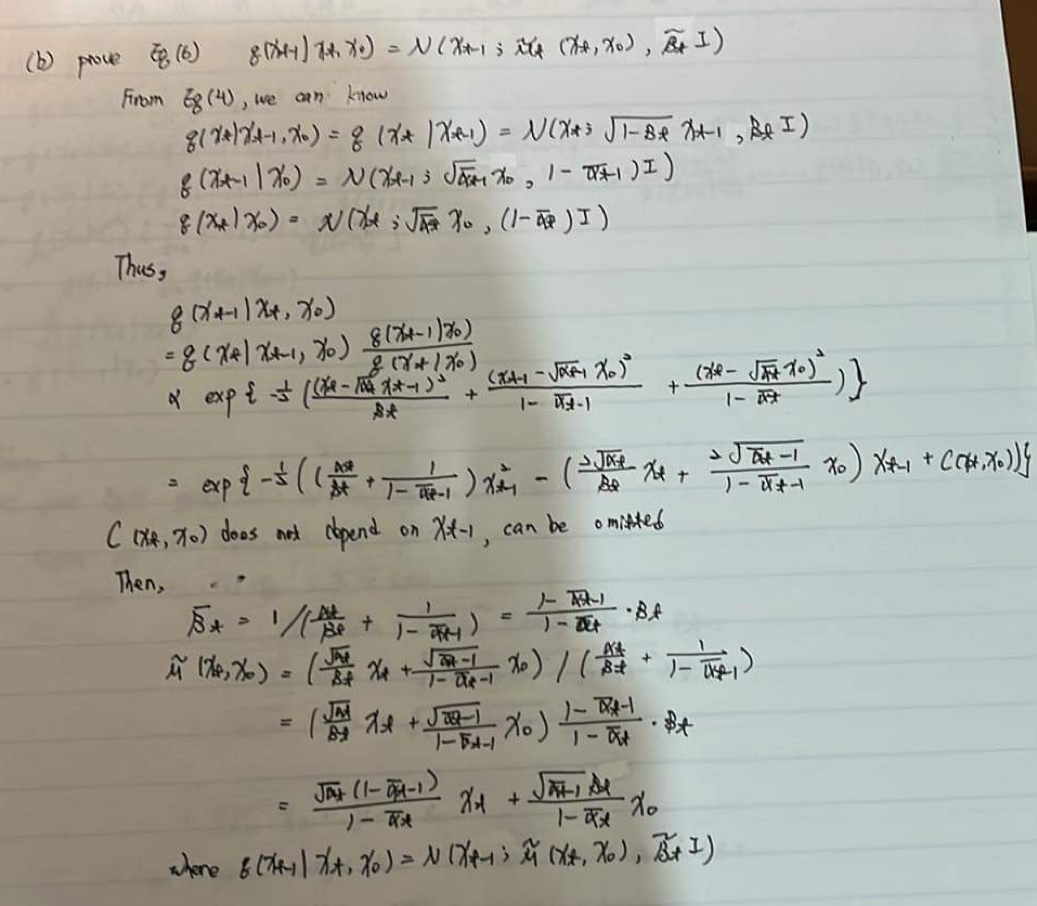 (b) prove Eq(6) q(x_{t-1}|x_t, x_0) = N(x_{t-1}; μ̃_t (x_t, x_0), β̃_t I)
From Eq(4), we can know
q(x_t|x_{t-1}, x_0) = q (x_t |x_{t-1}) = N(x_t; √(1-β_t) x_{t-1}, β_t I)
q (x_{t-1} | x_0) = N(x_{t-1}; √ᾱ_{t-1} x_0, 1 - ᾱ_{t-1}) I)
q (x_t | x_0) = N(x_t; √ᾱ_t x_0, (1-ᾱ_t) I)
Thus,
q (x_{t-1} | x_t, x_0)
= q (x_t | x_{t-1}, x_0) q(x_{t-1}|x_0) / q(x_t|x_0)
∝ exp{ -1/2 ( (x_t - √α_t x_{t-1})² / β_t + (x_{t-1} - √ᾱ_{t-1} x_0)² / (1 - ᾱ_{t-1}) + (x_t - √ᾱ_t x_0)² / (1 - ᾱ_t) ) }
= exp{ -1/2 ( (α_t/β_t + 1/(1 - ᾱ_{t-1})) x²_{t-1} - (2√α_t/β_t x_t + 2√ᾱ_{t-1}/(1 - ᾱ_{t-1}) x_0) x_{t-1} + C(x_t, x_0)) }
C (x_t, x_0) does not depend on x_{t-1}, can be omitted
Then,
β̃_t = 1/(α_t/β_t + 1/(1 - ᾱ_{t-1})) = (1 - ᾱ_{t-1})/(1 - ᾱ_t) · β_t
μ̃ (x_t, x_0) = (√α_t/β_t x_t + √ᾱ_{t-1}/(1 - ᾱ_{t-1}) x_0) / (α_t/β_t + 1/(1 - ᾱ_{t-1}))
= (√α_t/β_t x_t + √ᾱ_{t-1}/(1 - ᾱ_{t-1}) x_0) (1 - ᾱ_{t-1})/(1 - ᾱ_t) · β_t
= √α_t (1 - ᾱ_{t-1})/(1 - ᾱ_t) x_t + √ᾱ_{t-1} β_t/(1 - ᾱ_t) x_0
where q(x_{t-1} | x_t, x_0) = N(x_{t-1}; μ̃ (x_t, x_0), β̃_t I)